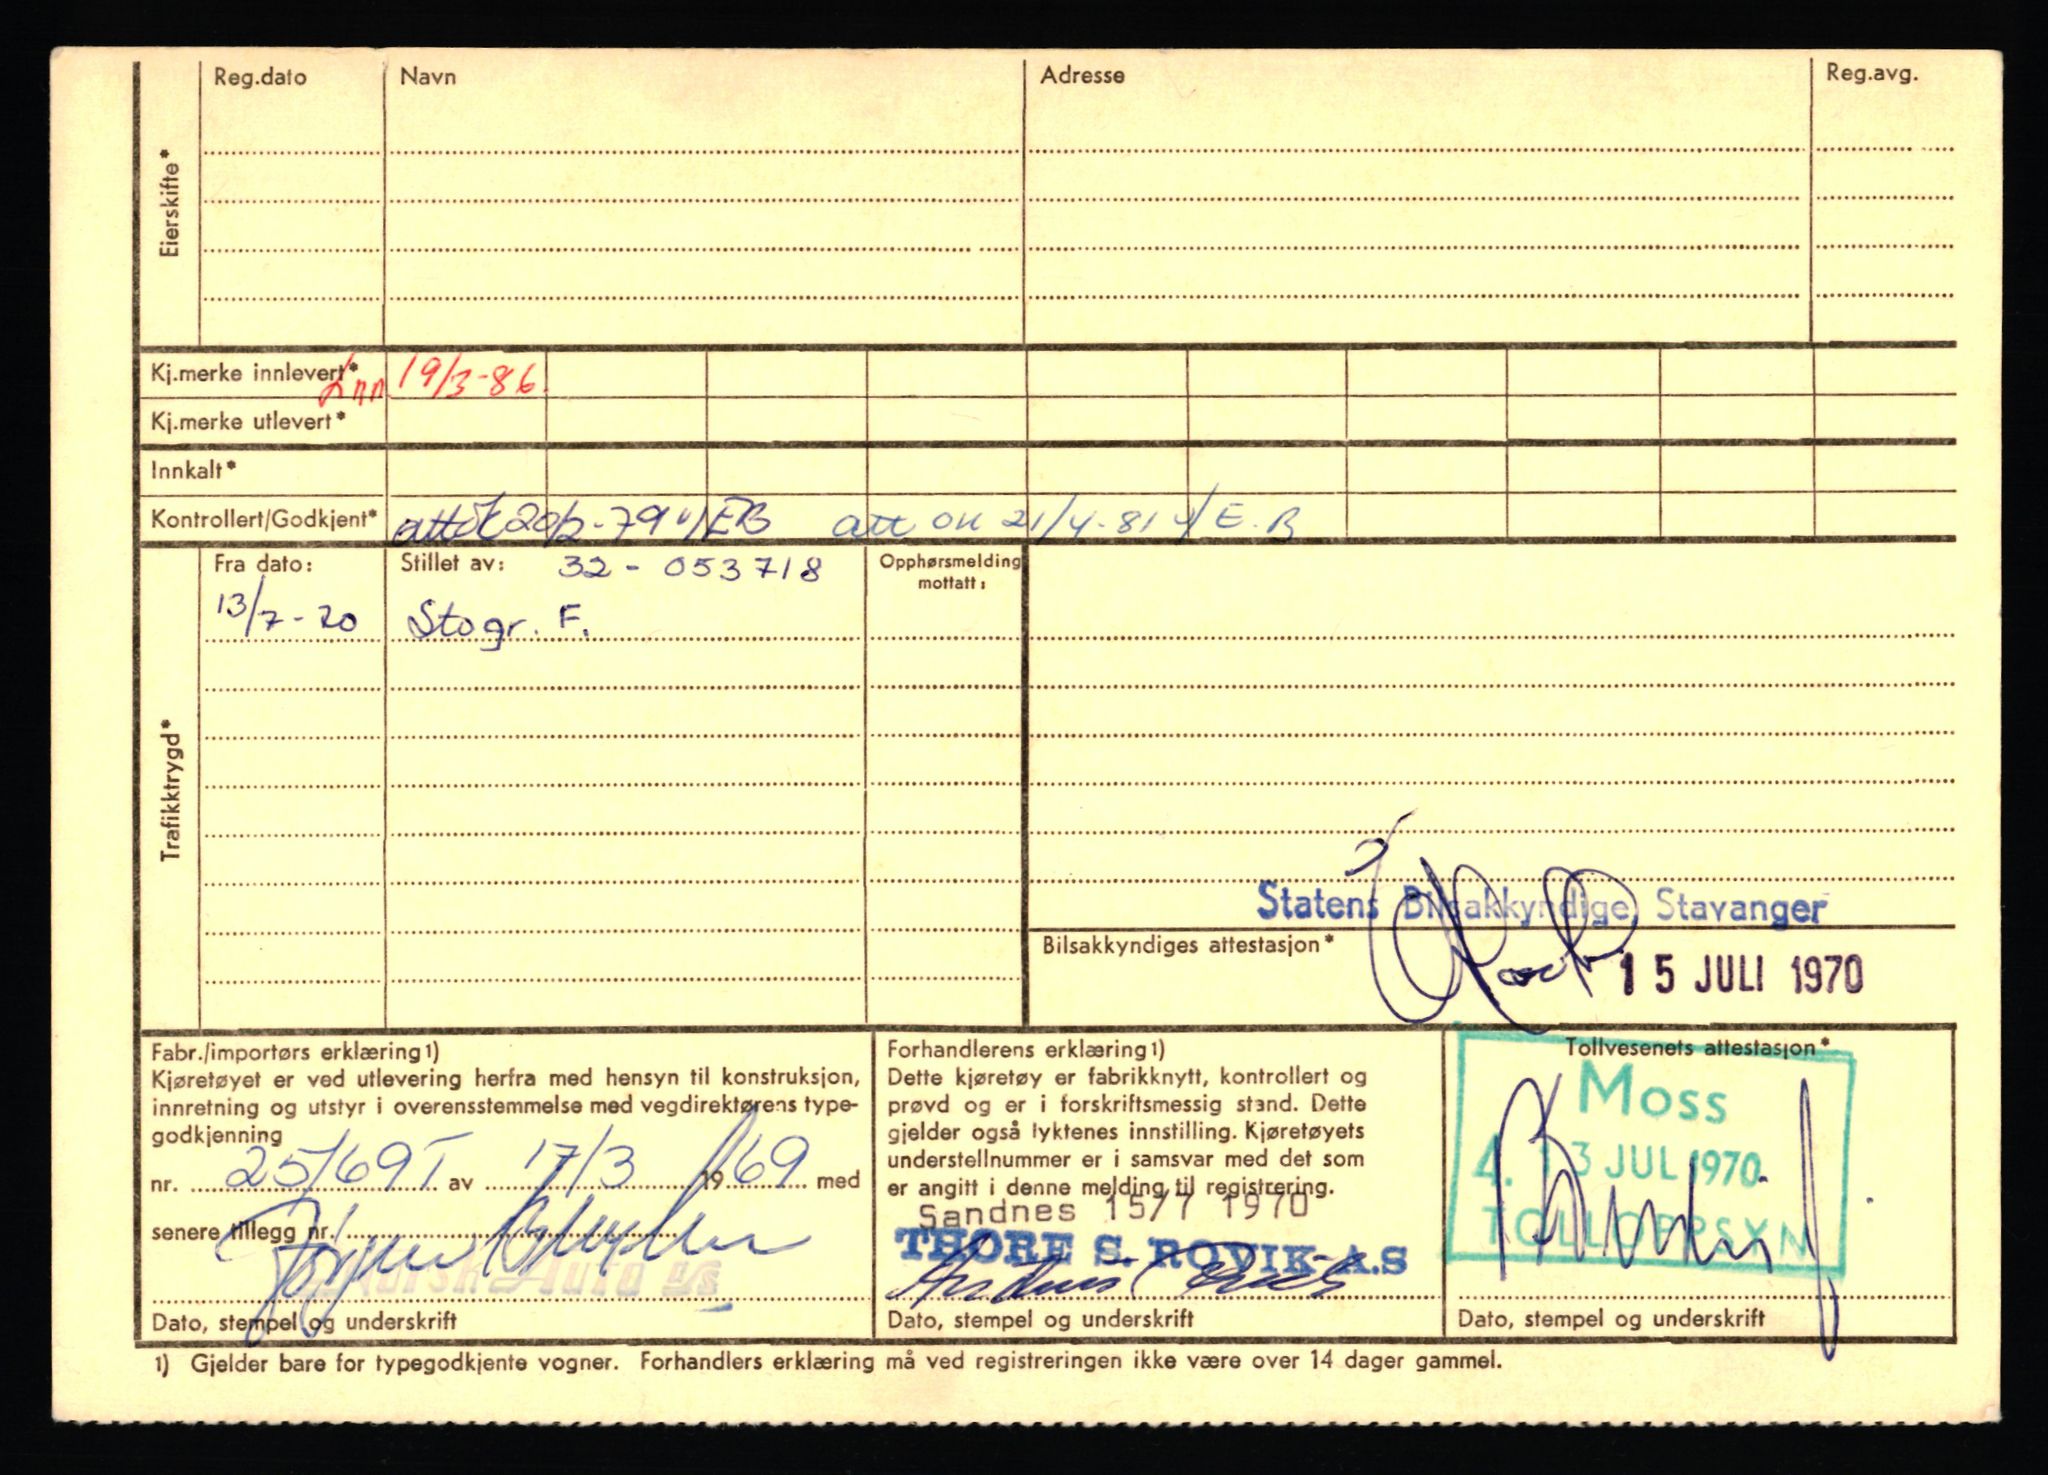 Reg.dato Navn Adresse Reg.avg.
Eierskifte*
Kj.merke innlevert* 19/3-86.
Kj.merke utlevert*
Innkalt*
Kontrollert/Godkjent* att ok 20/2-79 v/EB att ok 21/4-81 v/E.B
Trafikktrygd*
Fra dato: Stillet av: 32-053718 Opphørsmelding
mottatt:
13/7-70 Stogr. F.
Statens Bilsakkyndige, Stavanger
Bilsakkyndiges attestasjon*
15 JULI 1970
Fabr./importørs erklæring1)
Kjøretøyet er ved utlevering herfra med hensyn til konstruksjon,
innretning og utstyr i overensstemmelse med vegdirektørens type-
godkjenning
nr. 25/69 T av 17/3 1969 med
senere tillegg nr.
Norsk Auto A/S
Dato, stempel og underskrift
Forhandlerens erklæring1)
Dette kjøretøy er fabrikknytt, kontrollert og
prøvd og er i forskriftsmessig stand. Dette
gjelder også lyktenes innstilling. Kjøretøyets
understellnummer er i samsvar med det som
er angitt i denne melding til registrering.
Sandnes 15/7 1970
THORE S. ROVIK A.S
Dato, stempel og underskrift
Tollvesenets attestasjon*
MOSS
4. 13 JUL 1970
TOLLOPPSYN
Dato, stempel og underskrift
1) Gjelder bare for typegodkjente vogner. Forhandlers erklæring må ved registreringen ikke være over 14 dager gammel.